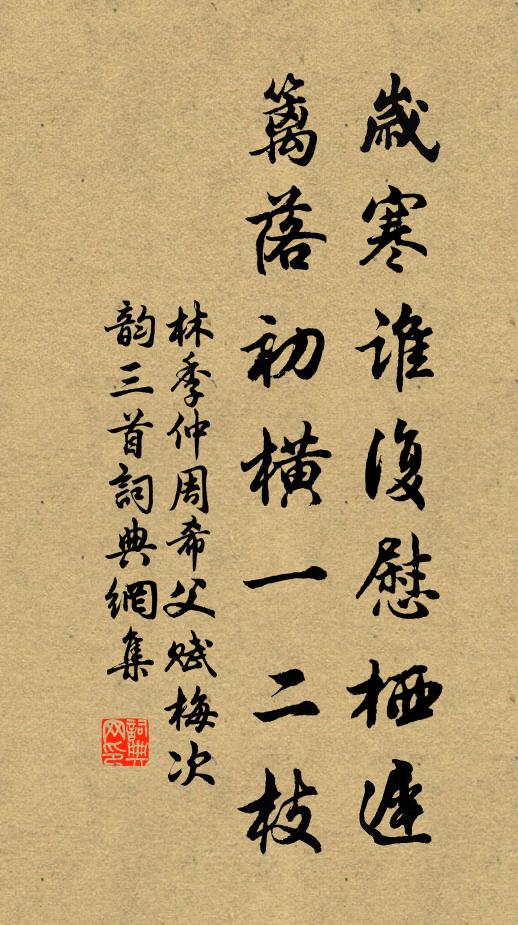 歲寒誰復慰栖遲
籬落初橫一二枝
林季仲周希父賦梅次
韵三首詞典網集
詞典
网印